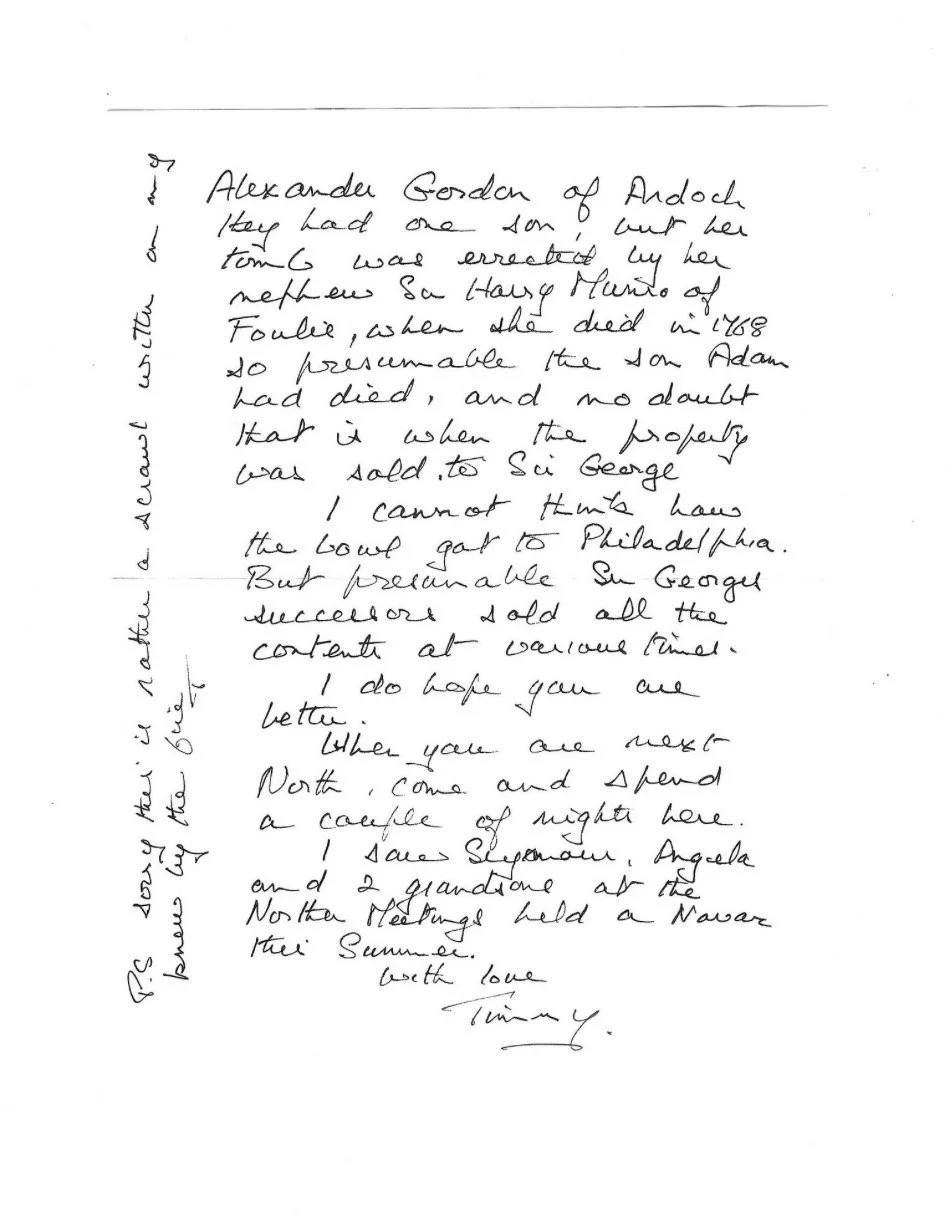 Alexander Gordon of Ardoch
They had one son, but her
tomb was errected by her
nephew Sir Harry Munro of
Foulis, when she died in 1768
so presumable the son Adam
had died, and no doubt
that is when the property
was sold to Sir George
I cannot think how
the bowl got to Philadelphia.
But presumable Sir Georges
successors sold all the
contents at various times.
I do hope you are
better.
When you are next
North, come and spend
a couple of nights here.
I saw Seymour, Angela
and 2 grandsons at the
Northern Meetings held a Novar
this Summer.
with love
Timmy.
P.S sorry this is rather a scrawl written on my
knees by the fire
T